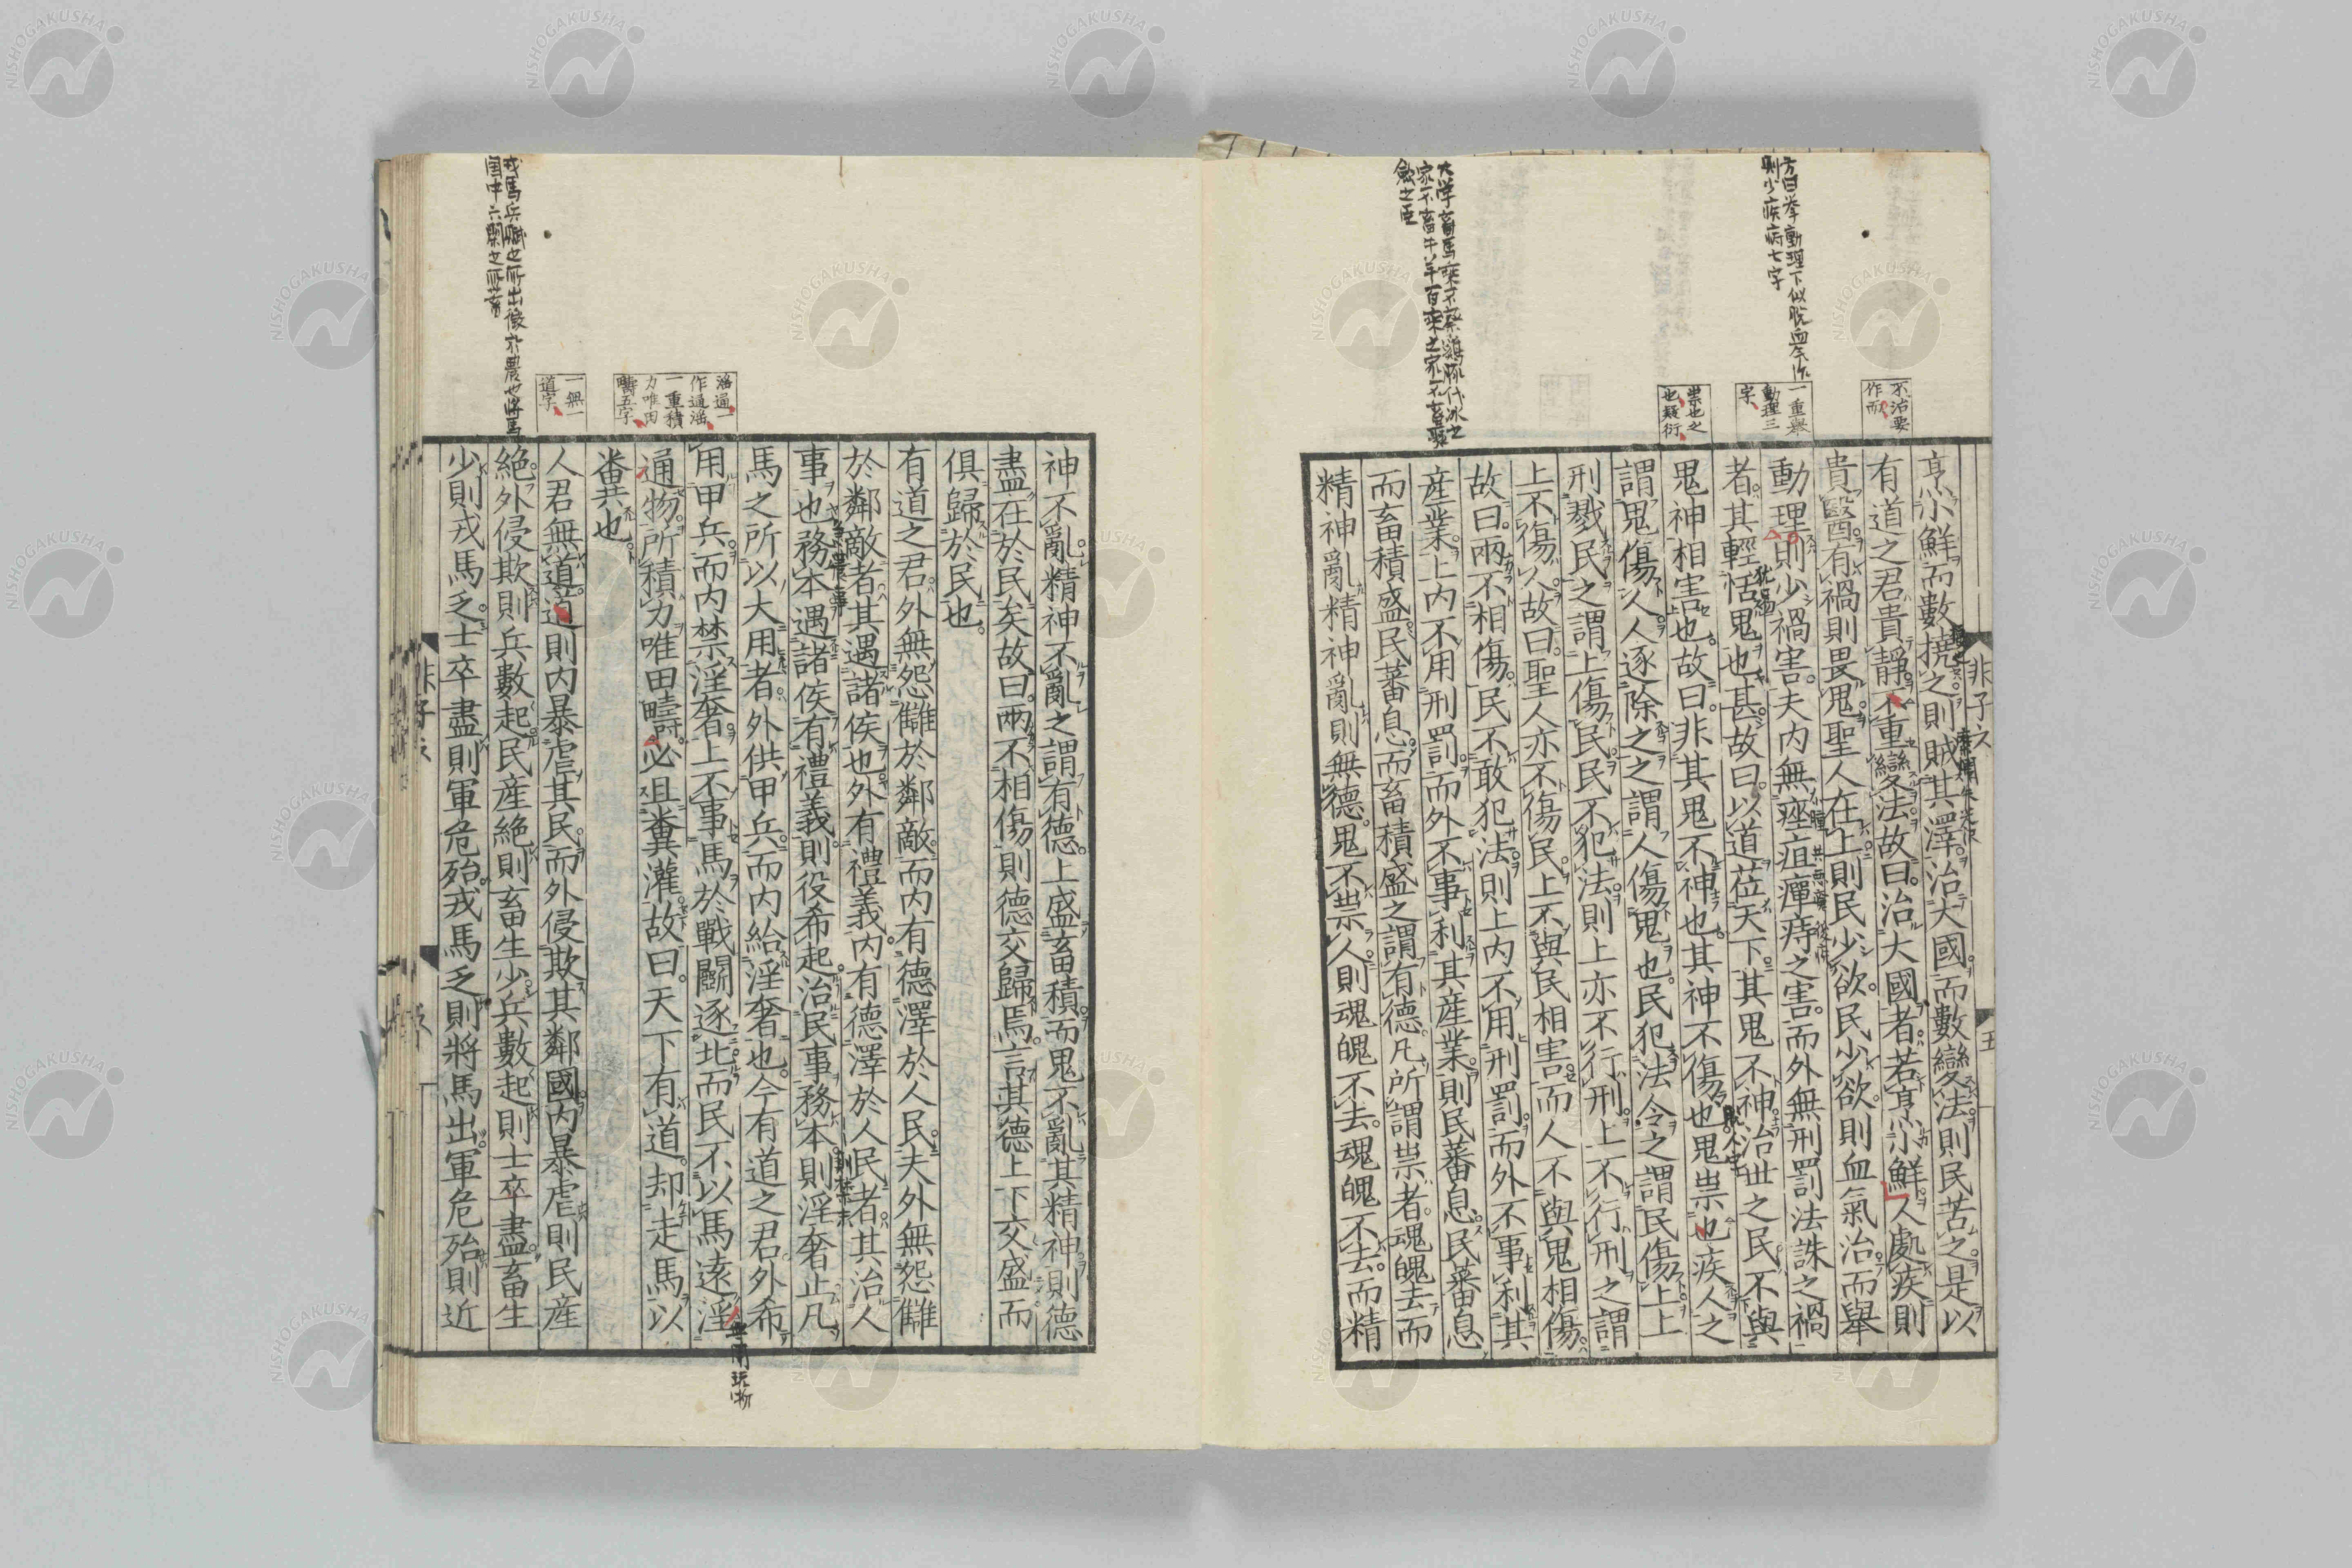 方曰挙動理下似脱血気治
則少疾病七字
大学畜馬乗不察鶏豚伐冰之
家不畜牛羊百乗之家不畜聚
斂之臣
不治要
作而
一重舉
動理三
字
祟也之
也疑衍
亨小鮮而數撓之則賊其澤治大國而數變法則民苦之是以
有道之君貴靜不重變法故曰治大國者若亨小鮮人處疾則
貴醫有禍則畏鬼聖人在上則民少欲民少欲則血氣治而舉
動理則少禍害夫內無痤疽癉痔之害而外無刑罰法誅之禍
者其輕恬鬼也甚故曰以道莅天下其鬼不神治世之民不與
鬼神相害也故曰非其鬼不神也其神不傷也鬼祟也疾人之
謂鬼傷人人逐除之之謂人傷鬼也民犯法令之謂民傷上上
刑戮民之謂上傷民民不犯法則上亦不行刑上不行刑之謂
上不傷人故曰聖人亦不傷民上不與民相害而人不與鬼相傷
故曰兩不相傷民不敢犯法則上內不用刑罰而外不事利其
産業上內不用刑罰而外不事利其產業則民蕃息民蕃息
而畜積盛民蕃息而畜積盛之謂有德凡所謂祟者魂魄去而
精神亂精神亂則無德鬼不祟人則魂魄不去魂魄不去而精
非子六
五
戎馬兵賦之所出徴於農也将馬
国中六閑之所畜
滛通一
作通滛
一重積
力唯田
疇五字
一無一
道字
神不亂精神不亂之謂有德上盛畜積而鬼不亂其精神則德
盡在於民矣故曰兩不相傷則德交歸焉言其德上下交盛而
俱歸於民也
有道之君外無怨讎於鄰敵而內有德澤於人民夫外無怨讎
於鄰敵者其遇諸侯也外有禮義內有德澤於人民者其治人
事也務本遇諸侯有禮義則役希起治民事務本則淫奢止凡
馬之所以大用者外供甲兵而內給淫奢也今有道之君外希
用甲兵而內禁淫奢上不事馬於戰鬭逐北而民不以馬遠淫
通物所積力唯田疇必且糞灌故曰天下有道却走馬以
糞也
人君無道道則內暴虐其民而外侵欺其鄰國內暴虐則民產
絕外侵欺則兵數起民産絕則畜生少兵數起則士卒盡畜生
少則戎馬乏士卒盡則軍危殆戎馬乏則將馬出軍危殆則近
無用玩物